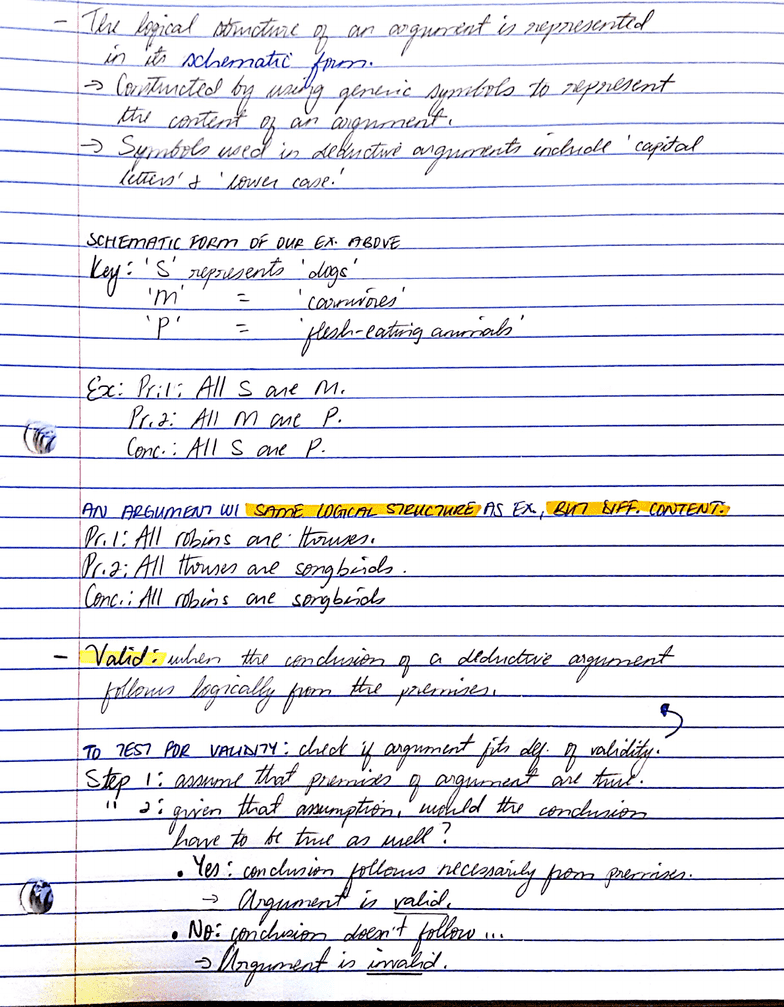 - The logical structure of an argument is represented
in its schematic form.
→ Constructed by using generic symbols to represent
the content of an argument.
→ Symbols used in deductive arguments include 'capital
letters' & 'lower case.'
SCHEMATIC FORM OF OUR EX. ABOVE
Key: 'S' represents 'dogs'
'M' = 'carnivores'
'P' = 'flesh-eating animals'
Ex: Pr.1: All S are M.
Pr.2: All M are P.
Conc.: All S are P.
AN ARGUMENT W/ SAME LOGICAL STRUCTURE AS EX, BUT DIFF. CONTENT.
Pr.1: All robins are thrushes.
Pr.2: All thrushes are songbirds.
Conc.: All robins are songbirds
- Valid: when the conclusion of a deductive argument
follows logically from the premises.
TO TEST FOR VALIDITY: check if argument fits def. of validity.
Step 1: assume that premises of argument are true.
" 2: given that assumption, would the conclusion
have to be true as well?
• Yes: conclusion follows necessarily from premises.
→ Argument is valid.
• No: conclusion doesn't follow ...
→ Argument is invalid.